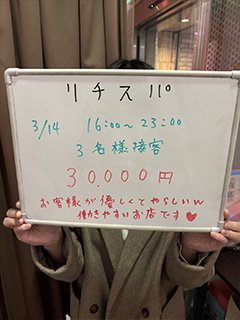 リチスパ
3/14 16:00~23:00
3名様接客
30.000円
お客様が優しくてやらしいw
働きやすいお店です♥